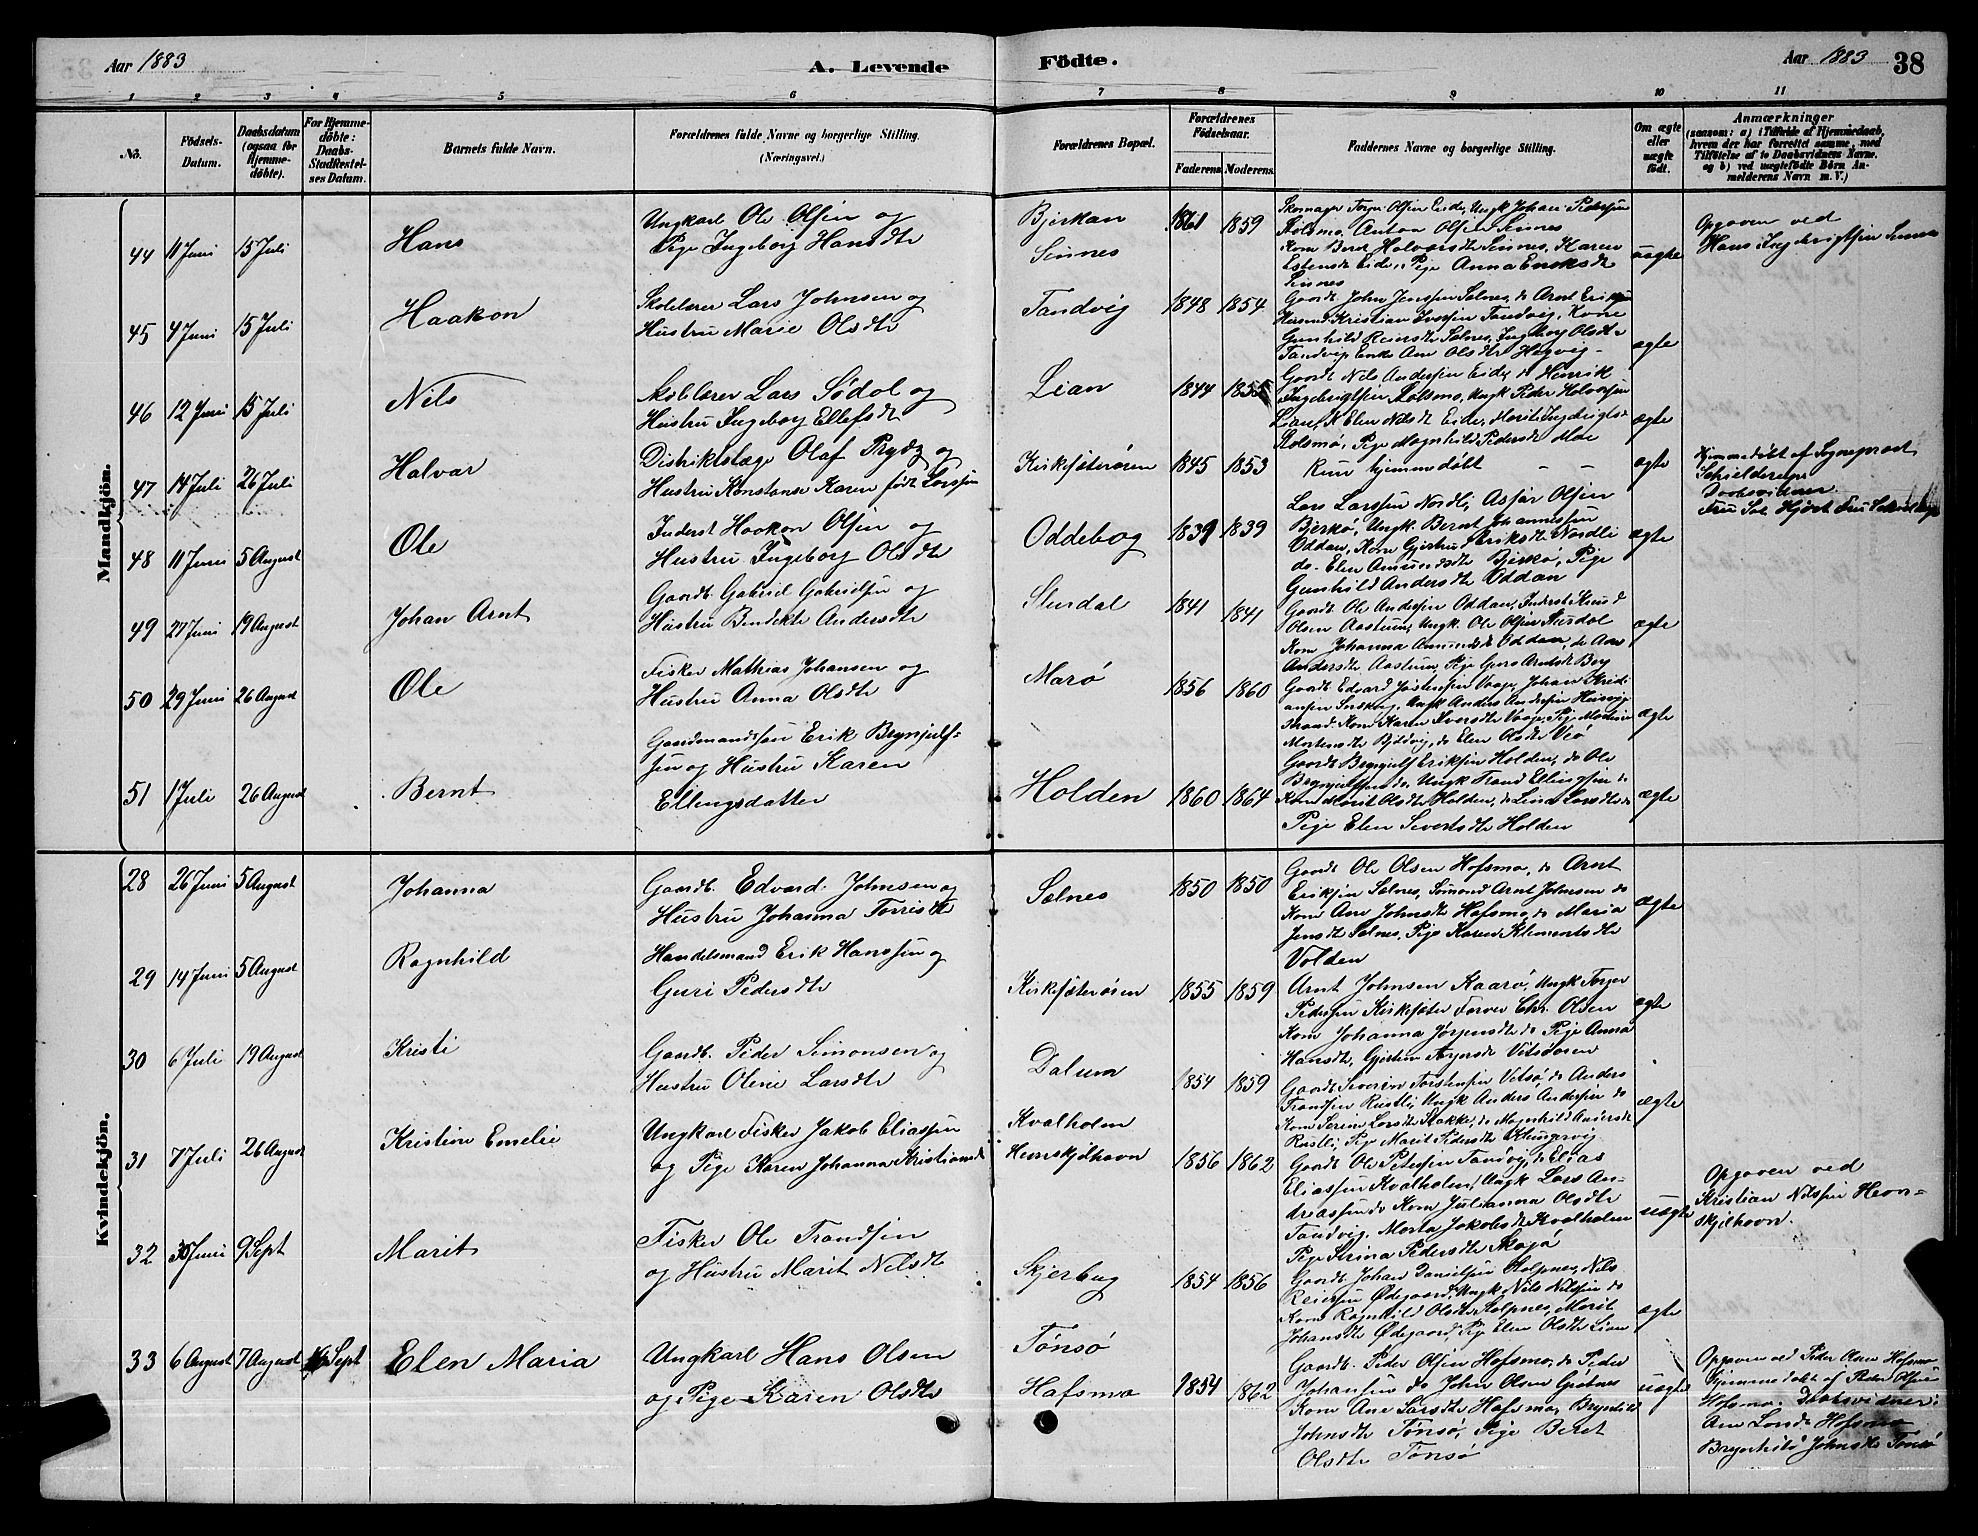 Aar 1883
A. Levende
Födte.
Aar 1883
38
1 2 3 4 5 6 7 8 9 10 11
No.
Födsels-
Datum.
Daabsdatum
(ogsaa for
Hjemme-
döbte).
For Hjemme-
döbte:
Daabs-
Stadfestel-
ses Datum.
Barnets fulde Navn.
Forældrenes fulde Navne og borgerlige Stilling.
(Næringsvei.)
Forældrenes Bopæl.
Forældrenes
Födselsaar.
Faderens Moderens
Faddernes Navne og borgerlige Stilling.
Om ægte
eller
uægte
födt.
Anmærkninger
(saasom: a) i Tilfælde af Hjemmedaab,
hvem der har forrettet samme, med
Tilföielse af to Daabsvidners Navne,
og b) ved uægtefödte Börn An-
melderens Navn m. V.)
Mandkjön.
44 11 Juni 15 Juli
Hans
Ungkarl Ole Olsen og
Pige Ingeborg Hansdtr
Bjerkan
Sinnes
1861 1859
Skomager Torger Olsen Eide, Ungk Johan Pedersen
Stolsmo, Anton Olsen Sinnes
Kone Beret Halvorsdtr Sinnes, Karen
Estensdtr Eide, Pige Anna Eriksdtr
Sinnes
uægte
Opgaven ved
Hans Ingebrigtsen Sinnes
45 4 Juni 15 Juli
Haakon
Skolelærer Lars Johnsen og
Hustru Marie Olsdtr
Tandvig
1848 1854
Gaardb. John Jenssen Selnes, do Arnt Eriksen
Kristian Iversen Tandvig, Kone
Gunhild Reiersdtr Selnes, Ingeborg Olsdtr
Tandvig, Enke Ane Olsdtr Hegvig
ægte
46 12 Juni 15 Juli
Nils
Skolelærer Lars Södal og
Hustru Ingeborg Ellefsdtr
Lian
1844 1855
Gaardb. Nils Andersen Eide, do Henrik
Ingebrigtsen Stolsmo, Ungk Peder Halvorsen
Lian, K Elen Nilsdtr Eide, Marit Ingebrigtsd
Stolsmo, Pige Magnhild Pedersdtr Moe
ægte
47 14 Juli 26 Juli
Halvar
Distriktslæge Olaf Prydz og
Hustru Konstanse Karen født Larssen
Kirkesæterøren
1845 1853
Kun hjemmedöbt — —
ægte
Hjemmedöbt af Sogneprest
Daabsvidner
48 11 Juni 5 August
Ole
Inderst Haakon Olsen og
Hustru Ingeborg Olsdtr
Oddebog
1839 1839
Lars Larssen Nordli, Asfar Olsen
Bjerkø, Ungk. Bernt Johannessen
Oddan, Kone Gjertru Eriksdtr Nordli
do. Elen Amundsdtr Bjerkø, Pige
Gunhild Andersdtr Oddan
ægte
49 27 Juni 19 August
Johan Arnt
Gaardb. Gabriel Gabrielsen og
Hustru Bendekte Andersdtr
Stursdal
1841 1841
Gaardb. Ole Andersen Oddan, Inderst Knud
Olsen Aastum, Ungk. Ole Olsen
Kone Johanna Amundsdt Oddan, do Ane
Andersdtr Aastum, Pige Guro Arntsdt Berg
ægte
50 29 Juni 26 August
Ole
Fisker Mathias Johansen og
Hustru Anna Olsdtr
Marö
1856 1860
Gaardb. Edvard Jostensen Vaage, Johan Kristi-
ansen, Ungk Anders Andersen
Strand, Kone Karen Iversdtr Vaage, Pige
Mortensdtr Bjldvig, do Elen Olsdtr Veö
ægte
51 1 Juli 26 August
Bernt
Gaardmandssøn Erik Brynjulf-
sen og Hustru Karen
Ellingsdatter
Holden
1860 1864
Gaardb. Brynjulf Eriksen Holden, do Ole
Brynjulfsen do, Ungk Trond Ellingsen do
Kone Marit Olsdtr Holden, do Lina Larsdtr do
Pige Elen Sivertsdtr Holden
ægte
Kvindekjön.
28 26 Juni 5 August
Johanna
Gaardb. Edvard Johnsen og
Hustru Johanna Torrisdtr
Selnes
1850 1850
Gaardb Ole Olsen Hofsmo, do Arnt
Eriksen Selnes, Sömand Arnt Johnsen do
Kone Ane Johnsdtr Hofsmo, do Maria
Jensdtr Selnes, Pige Karen Klementsdtr
Volden
ægte
29 14 Juni 5 August
Ragnhild
Handelsmand Erik Hanssen og
Guri Pedersdtr
Kirkesæterören
1855 1859
Arnt Johnsen Kaarö, Ungk Torger
Pedersen Kirkesæter Farver Chr. Olsen
Kone Johanna Jörgensdtr do Pige Anna
Hansdtr, Gjertine Vetsöosen
ægte
30 6 Juli 19 August
Kristi
Gaardb. Peder Simonsen og
Hustru Oline Larsdtr
Dalum
1854 1859
Gaardb Severin Torstensen Vetsö, do Anders
Trondsen Rustli, Ungk Anders Andersen do
Kone Seren Larsdtr Stakke, do Magnhild Andersdt
Rustli, Pige Marit Pedersdtr
ægte
31 7 Juli 26 August
Kristine Emelie
Ungkarl Fisker Jakob Eliassen
og Pige Karen Johanna Kristiansd
Kvalholm
Hemskjelhavn
1856 1862
Gaardb Ole Petersen Tandvig, do Elias
Eliassen Kvalholm, Ungk Lars An-
dreassen do Kone Julianna Olsdtr
Tandvig, Marta Jakobsdt Kvalholm
Pige Serina Pedersdtr
uægte
Opgaven ved
Kristian Nilssen Hem-
skjelhavn.
32 30 Juni 9 Sept
Marit
Fisker Ole Trondsen
og Hustru Marit Nilsdtr
Skjerbug
1854 1856
Gaardb. Johan Danielsen Stolpnes, Nils
Reiersen Ødegaard, Ungk Nils Nilssen do
Kone Ragnhild Olsdtr Stolpnes, Marit
Johansdtr Ødegaard, Pige Elen Olsdtr Lian
ægte
33 6 August 7 August 19 Sept
Elen Maria
Ungkarl Hans Olsen
og Pige Karen Olsdtr
Tönsö
Hafsmo
1854 1862
Gaardb. Peder Olsen Hofsmo, do Peder
Johansen do John Olsen Grötnes
Kone Ane Larsdtr Hofsmo, Brynhild
Johnsdtr Tönsö, Pige Beret
Olsdtr Tönsö
uægte
Opgaven ved Peder Olsen Hofsmo
Hjemmedöbt af Peder Olsen
Hofsmo. Daabsvidner:
Ane Larsdtr Hofsmo
Brynhild Johnsdtr Tönsö